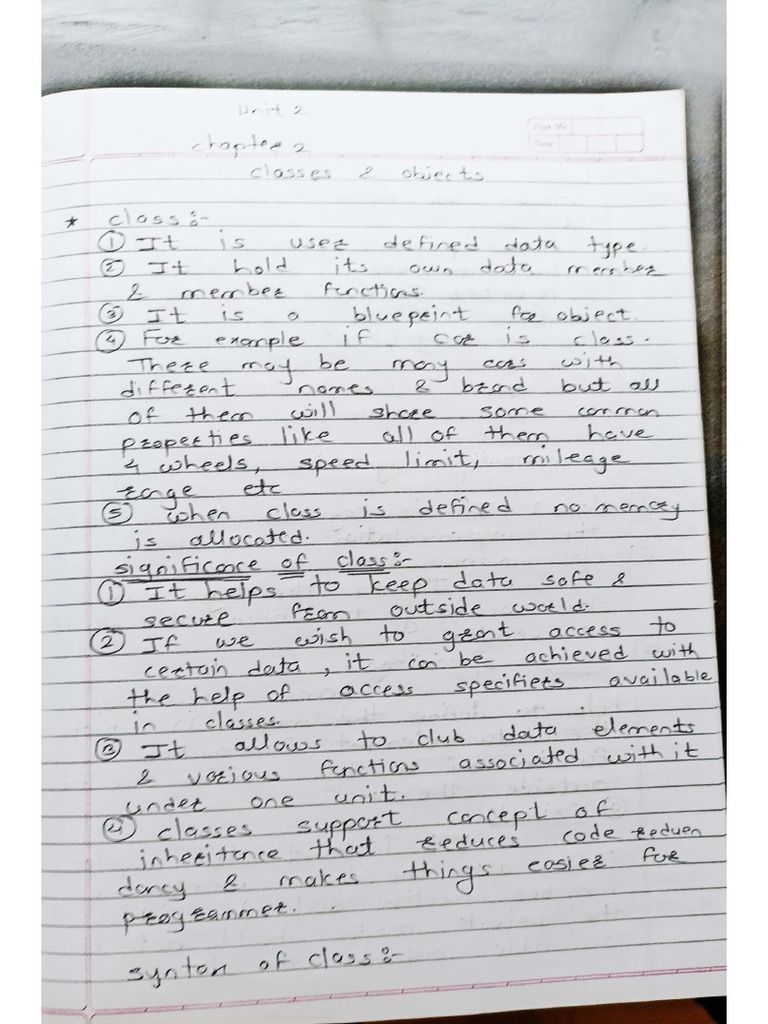 Unit 2
Page No.
Date
chapter 2
classes & objects
* class:-
① It is user defined data type.
② It hold its own data member
& member functions.
③ It is a blueprint for object.
④ For example if car is class.
There may be many cars with
different names & brand but all
of them will share some common
properties like all of them have
4 wheels, speed limit, mileage
range etc
⑤ when class is defined no memory
is allocated.
significance of class:-
① It helps to keep data safe &
secure from outside world.
② If we wish to grant access to
certain data, it can be achieved with
the help of access specifiers available
in classes.
③ It allows to club data elements
& various functions associated with it
under one unit.
④ classes support concept of
inheritance that reduces code redun
dancy & makes things easier for
programmer.
syntax of class:-